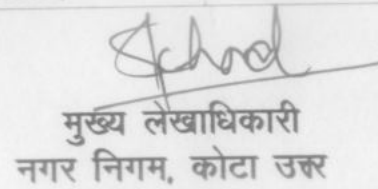 मुख्य लेखाधिकारी
नगर निगम, कोटा उत्तर